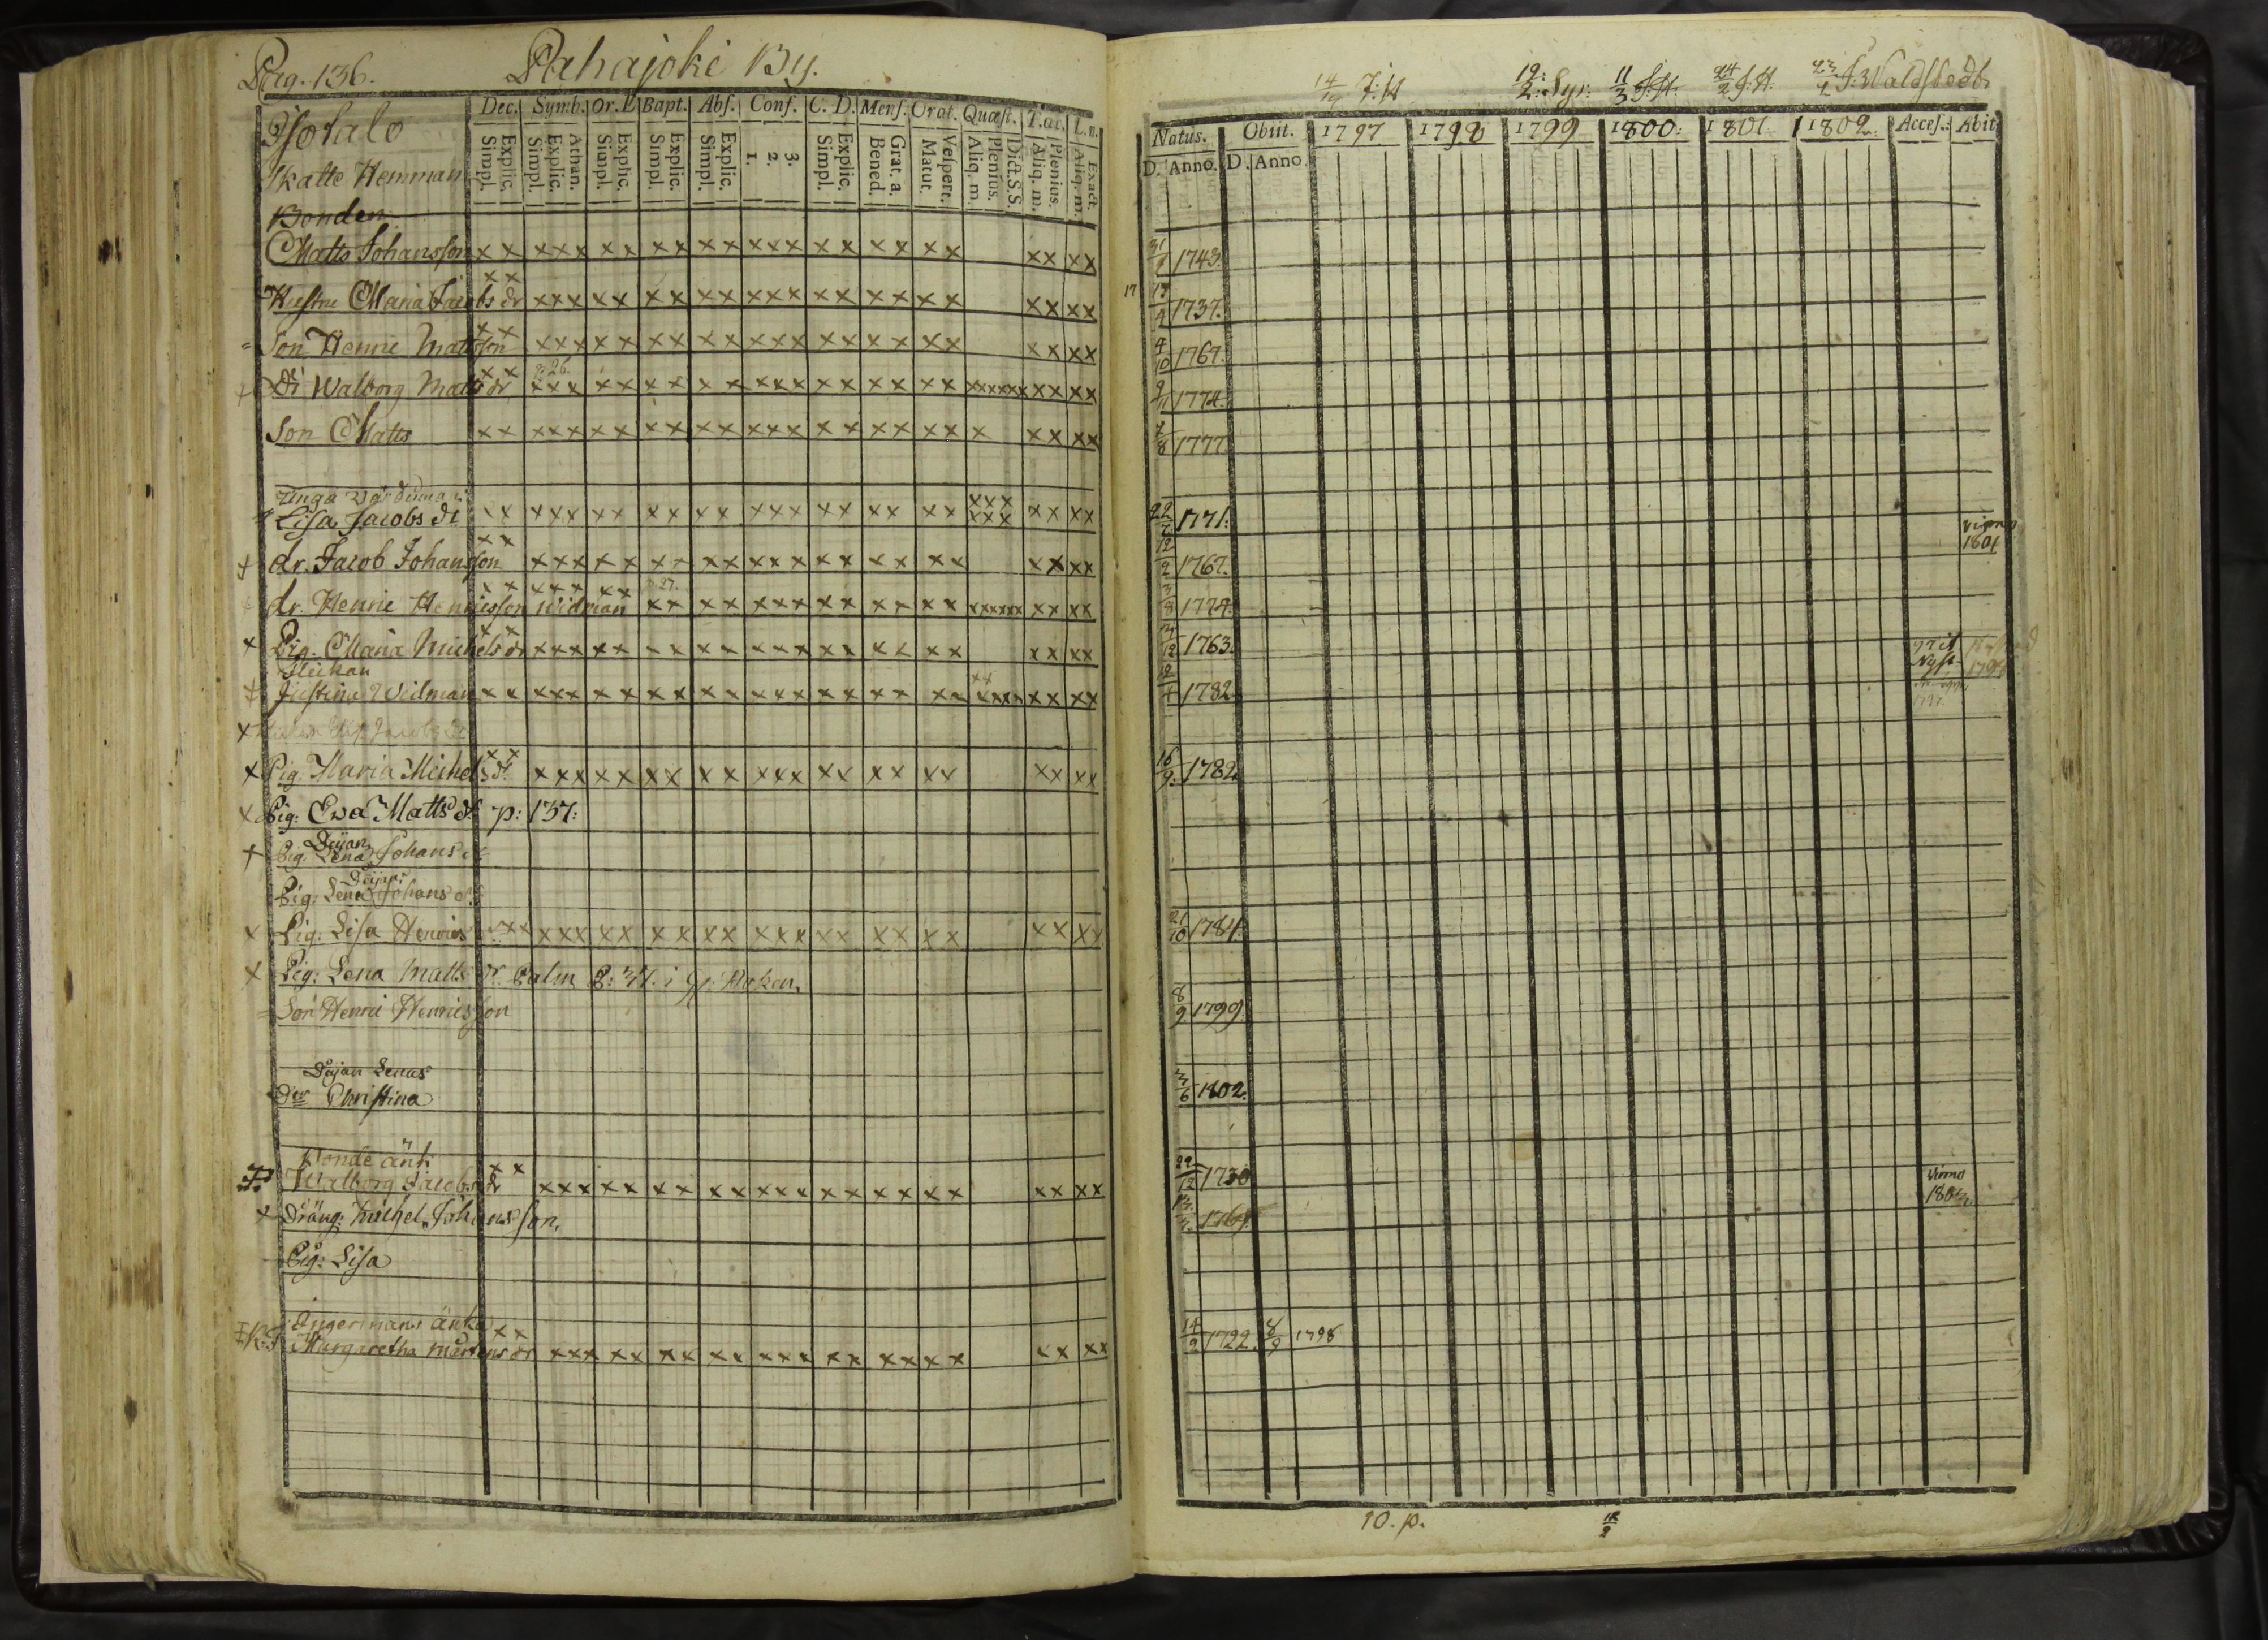 Pag. 136. Pahajoki By.
Isotalo
Skatte Hemman
Dec. Symb. Or. D. Bapt. Abs. Conf. C. D. Mens. Orat. Quæst. T. æt. L. n.
Explic. Simpl. Athan. Explic. Simpl. Explic. Simpl. Explic. Simpl. Explic. Simpl. 3. 2. 1. Explic. Simpl. Grat. a. Bened. Vespert. Matut. Dict. S.S. Plenius. Aliq. m. Plenius. Aliq. m. Exact. Aliq. m.
Bonden
Matts Johansson x x x x x x x x x x x x x x x x x x x x x x x x
Hustru Maria Jacobs dr x x x x x x x x x x x x x x x x x x x x x x x x
Son Henric Mattsson x x x x x x x x x x x x x x x x x x x x x x x x
p. 26.
Dr Walborg Matts dr x x x x x x x x x x x x x x x x x x x x x x x x x x x x x x
Son Matts x x x x x x x x x x x x x x x x x x x x x x x x x
unga Värdinnan
Lisa Jacobs dr x x x x x x x x x x x x x x x x x x x x x x x x x x x x x x
dr. Jacob Johansson x x x x x x x x x x x x x x x x x x x x x x x x
p. 27.
dr. Henric Henricsson Widman x x x x x x x x x x x x x x x x x x x x x x x x x x x x x x
Pig. Maria Michels dr x x x x x x x x x x x x x x x x x x x x x x x x
Flickan
Justina Widman x x x x x x x x x x x x x x x x x x x x x x x x x x x x x x
Pig. Maria Michels dr. x x x x x x x x x x x x x x x x x x x x x x x x
Pig: Ewa Matts dr p: 137:
Dejan
Pig. Lena Johans dr
Dejan
Pig: Lena Johans dr
Pig: Lisa Henrics x x x x x x x x x x x x x x x x x x x x x x x x
Pig: Lena Matts dr Palm
Son Henric Henricsson
Dejan Lenas
Dr Christina
Bonde änk:
Walborg Jacobs dr x x x x x x x x x x x x x x x x x x x x x x x x
Dräng: Michel Johansson,
Pig: Lisa
Angermans änka
Margaretha Mårtens dr x x x x x x x x x x x x x x x x x x x x x x x x
14/17 J. H. 19/2: Lyr: 11/3 J. H. 24/2 J. H. J. Waldstedt
Natus. Obiit. 1797 1798 1799 1800. 1801 1802. Acces. Abit
D. Anno. D. Anno.
1743.
17
1737.
4/10 1767.
9/11 1774.
1777.
1771.
1801
12/2 1767.
3/8 1774.
1763.
Nyst.
1782
1797.
16/9. 1782
21/10 1784.
8/9 1799.
3/6 1802.
29/12 1730
Virmo
180
1764.
14/9 1722. 8/9 1798
10. p.